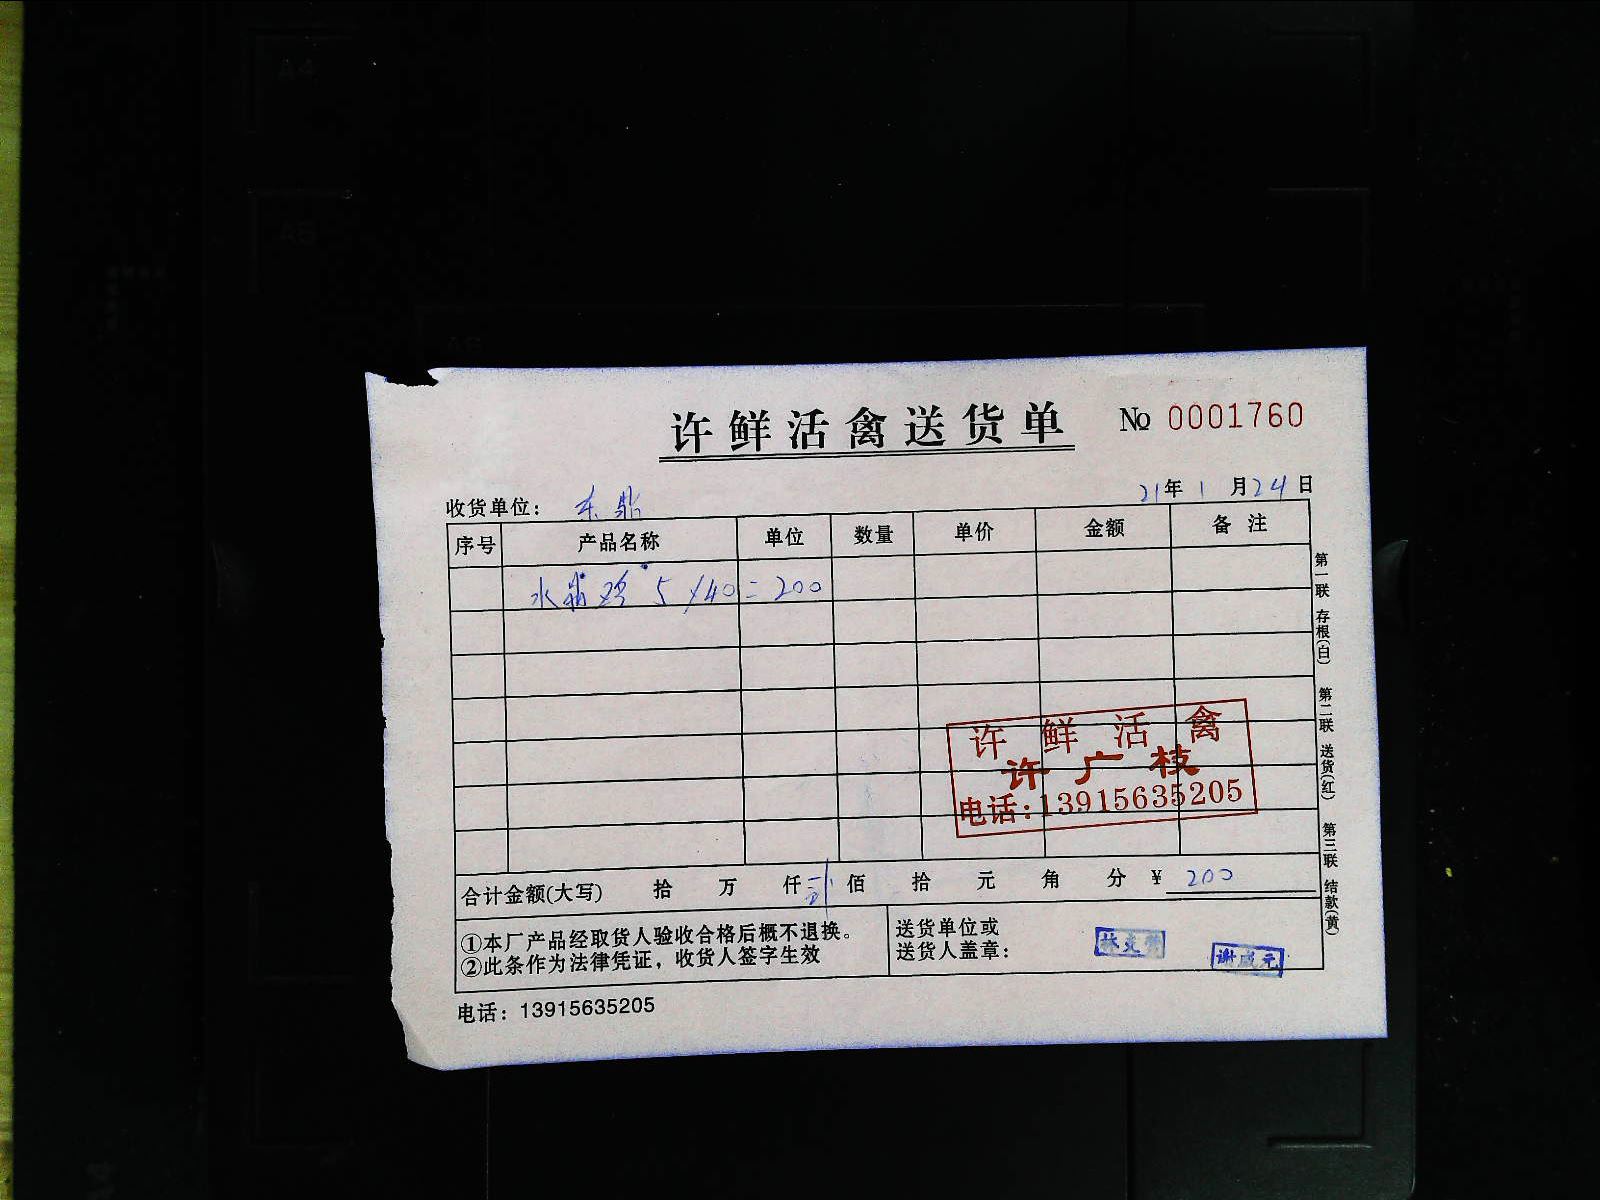 许鲜活禽送货单 № 0001760
收货单位： 东鼎 21年 1 月24日
序号 产品名称 单位 数量 单价 金额 备注
水 鸡 5 /40 = 200
许鲜活禽
许广枝
电话:13915635205
合计金额(大写) 拾 万 仟 贰 佰 拾 元 角 分 ¥ 200
①本厂产品经取货人验收合格后概不退换。
②此条作为法律凭证，收货人签字生效
送货单位或
送货人盖章：
谢成元
电话：13915635205
第一联 存根(白) 第二联 送货(红) 第三联 结款(黄)
A4
A5